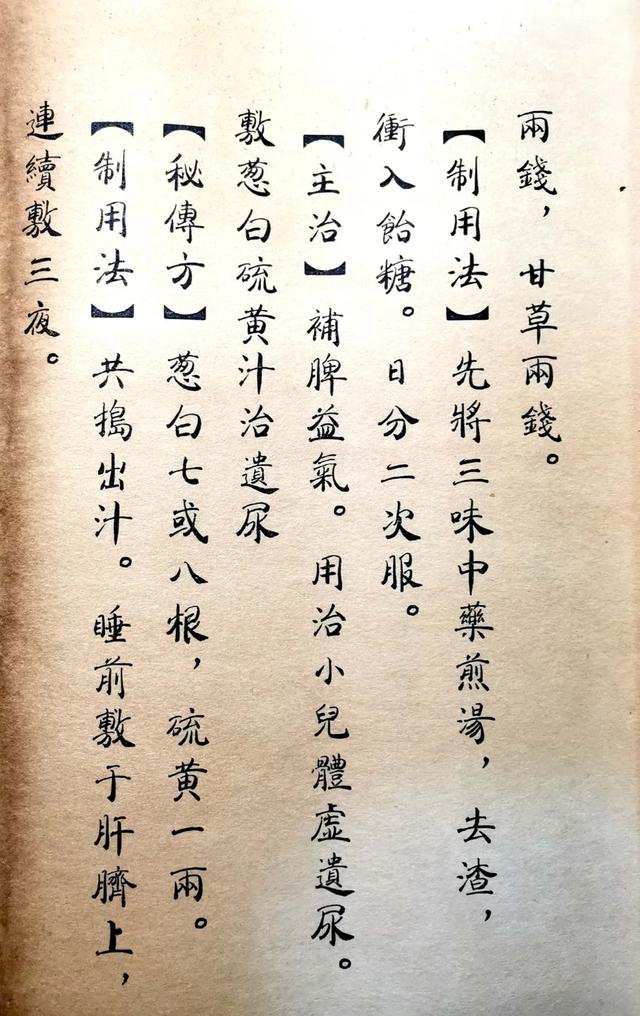 兩錢，甘草兩錢。
【制用法】先將三味中藥煎湯，去渣，
衝入飴糖。日分二次服。
【主治】補脾益氣。用治小兒體虛遺尿。
敷葱白硫黄汁治遺尿
【秘傳方】葱白七或八根，硫黄一兩。
【制用法】共搗出汁。睡前敷于肝臍上，
連續敷三夜。